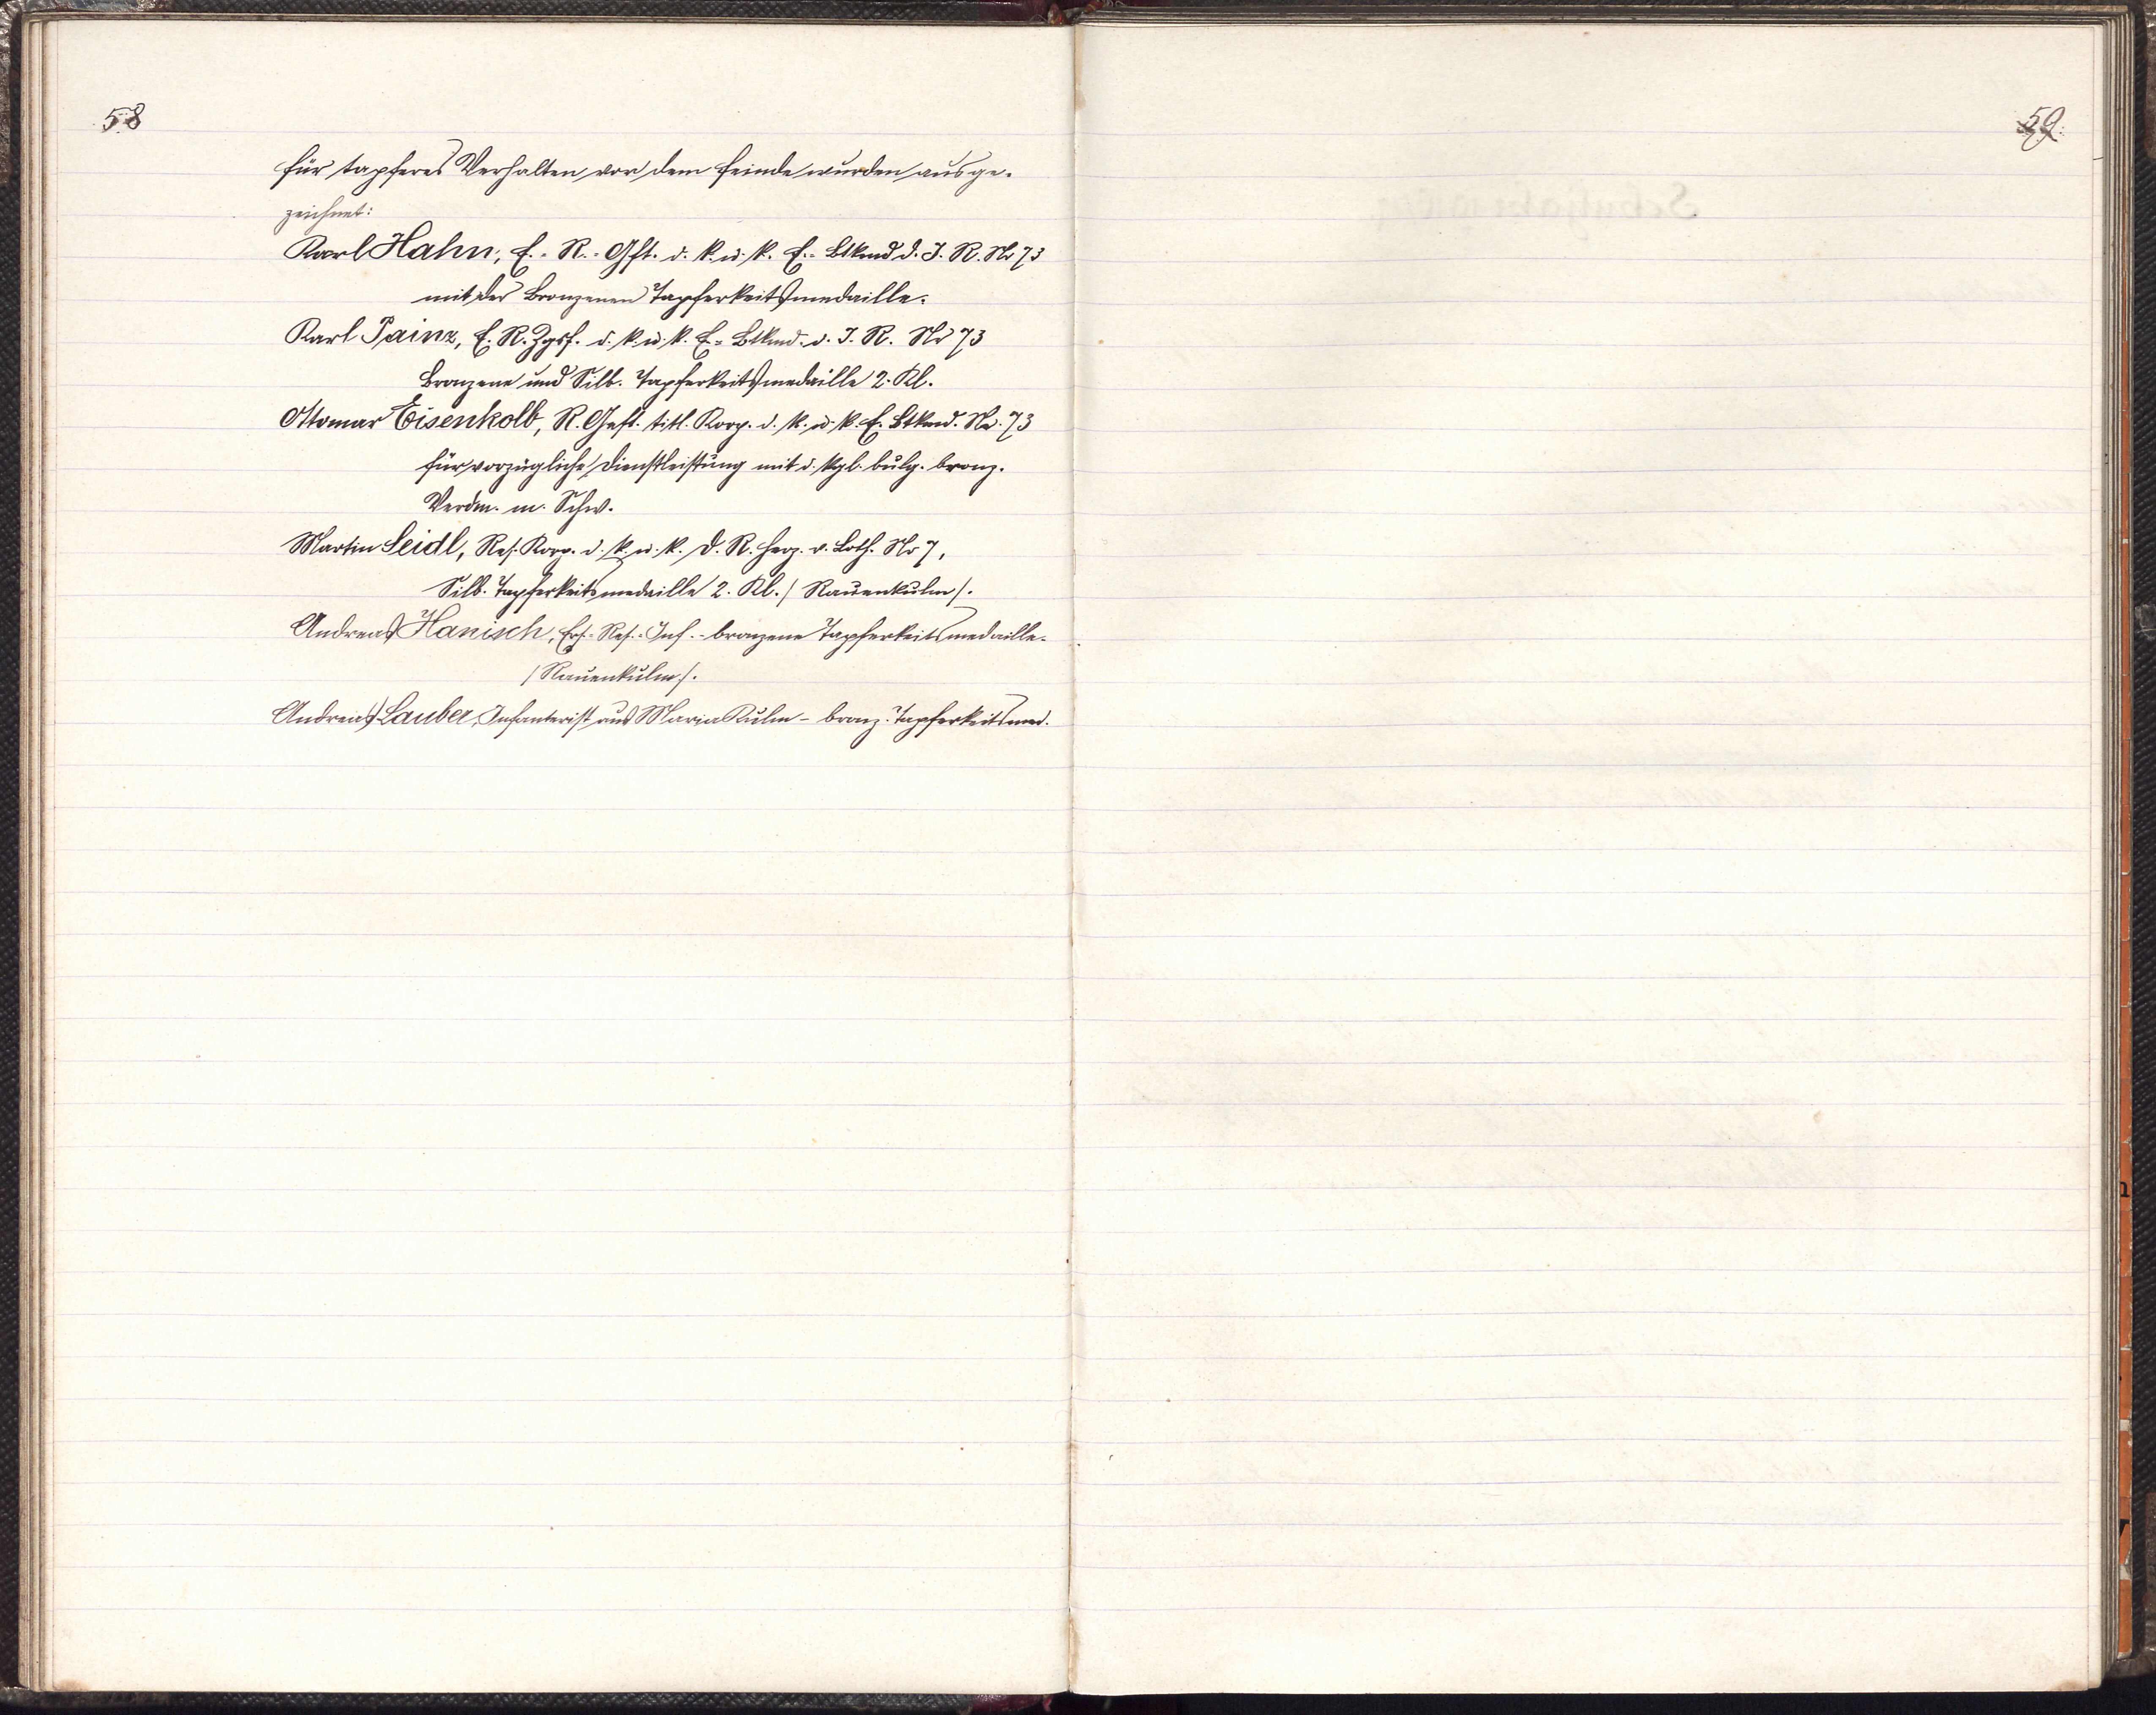 58
Für tapferes Verhalten vor dem Feinde wurden ausge-
zeichnet:
Karl Hahn, E.-R.-Gft. d. k. u. k. E.-Btkmd d. I. R. Nr 73
mit der Bronzenen Tapferkeitsmedaille.
Karl Painz, E. R. Zgsf. d. k. u. k. E.-Btkmd. d. I. R. Nr 73
Bronzene und Silb. Tapferkeitsmedaille 2. Kl.
Ottomar Eisenkolb, R. Gefr. titl. Korp. d. k. u. k. E. Btkmd. Nr. 73
für vorzügliche Dienstleistung mit d. kgl. bulg. bronz.
Verdm. m. Schw.
Martin Seidl, Res. Korp. d. k. u. k. D. R. Herz. v. Loth. Nr 7,
Silb. Tapferkeitsmedaille 2. Kl. / Rauenkulm /.
Andreas Hanisch, Ers.-Res.-Inf. - bronzene Tapferkeitsmedaille.
/ Rauenkulm /.
Andreas Lauber, Infanterist aus Maria Kulm - bronz. Tapferkeitsmed.
59